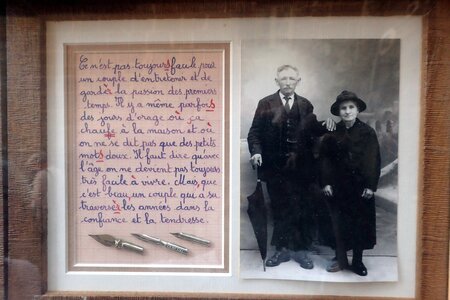 Ce n'est pas toujours facile pour
un couple d'entretenir et de
garder la passion des premiers
temps. Il y a même parfois
des jours d'orage où ça
chauffe à la maison et où
on ne se dit pas que des petits
mots doux. Il faut dire qu'avec
l'âge on ne devient pas toujours
très facile à vivre. Mais, que
c'est beau un couple qui a su
traverser les années dans la
confiance et la tendresse.